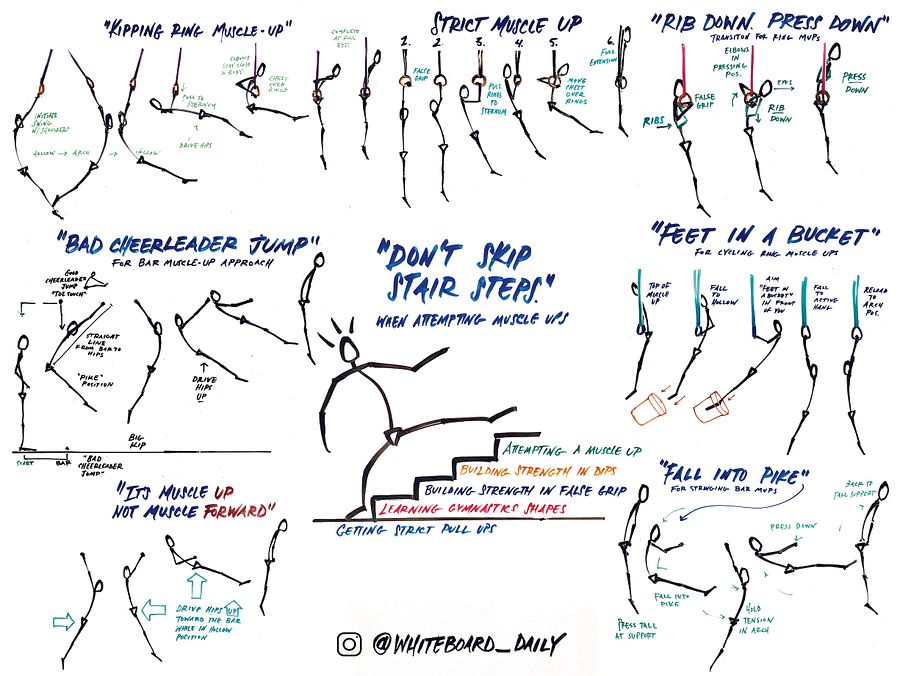 "KIPPING RING MUSCLE-UP"
INITIATE
SWING
W/ SHOULDERS
HOLLOW → ARCH → HOLLOW
PULL TO
STERNUM
DRIVE HIPS
ELBOWS
STAY CLOSE
TO BODY
CHEST
OVER
RINGS
COMPLETE
AT FULL
EXT.
STRICT MUSCLE UP
1. 2. 3. 4. 5. 6.
FALSE
GRIP
PULL
RINGS TO
STERNUM
MOVE
CHEST
OVER
RINGS
FULL
EXTENSION
"RIB DOWN. PRESS DOWN"
TRANSITION FOR RING MUPS
RIBS
FALSE
GRIP
ELBOWS
IN
PRESSING
POS.
EYES
RIB
DOWN
PRESS
DOWN
"BAD CHEERLEADER JUMP"
FOR BAR MUSCLE-UP APPROACH
GOOD
CHEERLEADER
JUMP
"TOE TOUCH"
STRAIGHT
LINE
FROM BAR TO
HIPS
"PIKE"
POSITION
START
BAR
"BAD
CHEERLEADER
JUMP"
BIG
KIP
DRIVE
HIPS
UP
"DON'T SKIP
STAIR STEPS."
WHEN ATTEMPTING MUSCLE UPS
ATTEMPTING A MUSCLE UP
BUILDING STRENGTH IN DIPS
BUILDING STRENGTH IN FALSE GRIP
LEARNING GYMNASTICS SHAPES
GETTING STRICT PULL UPS
"FEET IN A BUCKET"
FOR CYCLING RING MUSCLE UPS
TOP OF
MUSCLE
UP
FALL
TO
HOLLOW
AIM
"FEET IN
A BUCKET"
IN FRONT
OF YOU
FALL
TO
ACTIVE
HANG
RELOAD
TO
ARCH
POS.
"ITS MUSCLE UP
NOT MUSCLE FORWARD"
DRIVE HIPS UP
TOWARD THE BAR
WHILE IN HOLLOW
POSITION
"FALL INTO PIKE"
FOR STRINGING BAR MUPS
PRESS TALL
AT SUPPORT
FALL INTO
PIKE
HOLD
TENSION
IN ARCH
PRESS DOWN
BACK TO
TALL SUPPORT
@WHITEBOARD_DAILY